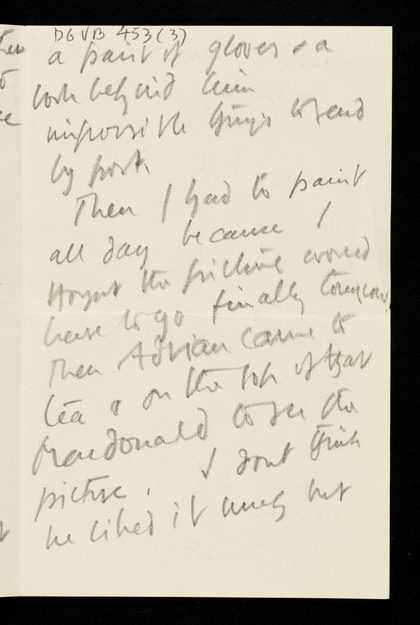 DGVB 453(3)
a pair of gloves & a
book behind him
impossible things to send
by post.
Then I had to paint
all day because I
thought the picture would
have to go finally tomorrow
Then Adrian came to
tea & on the top of that
Macdonald to see the
picture. I dont think
he liked it much but